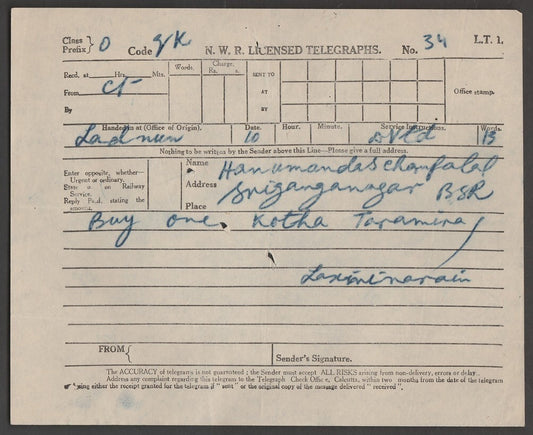 Class Prefix } O Code N. W. R. LICENSED TELEGRAPHS. No. 34 L.T. 1.
Words. Charge.
Rs. a.
Recd. at Hrs. Mts. SENT TO
From AT Office stamp.
By BY
Handed in at (Office of Origin). Date. Hour. Minute. Service Instructions. Words.
Ladnun 10 13
Nothing to be written by the Sender above this Line—Please give a full address.
Enter opposite, whether—
Urgent or ordinary.
State or on Railway
Service.
Reply Paid, stating the
amount.
Name Hanumandas Champalal
Address Sriganganagar BSR
Place
Buy one Kotha Taramira
Laxminarain
FROM{
Sender's Signature.
The ACCURACY of telegrams is not guaranteed ; the Sender must accept ALL RISKS arising from non-delivery, errors or delay.
Address any complaint regarding this telegram to the Telegraph Check Office, Calcutta, within two months from the date of the telegram
either the receipt granted for the telegram if " sent " or the original copy of the message delivered " received ".